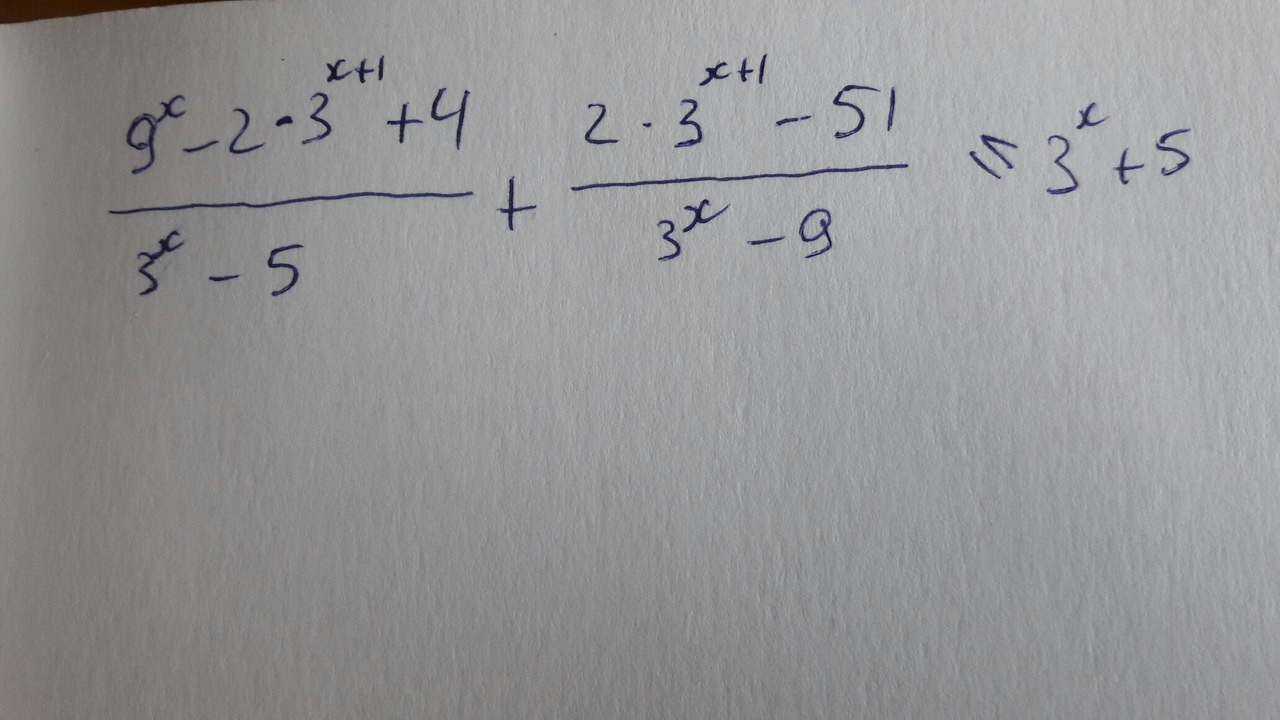 \frac{9^x - 2 \cdot 3^{x+1} + 4}{3^x - 5} + \frac{2 \cdot 3^{x+1} - 51}{3^x - 9} \leqslant 3^x + 5